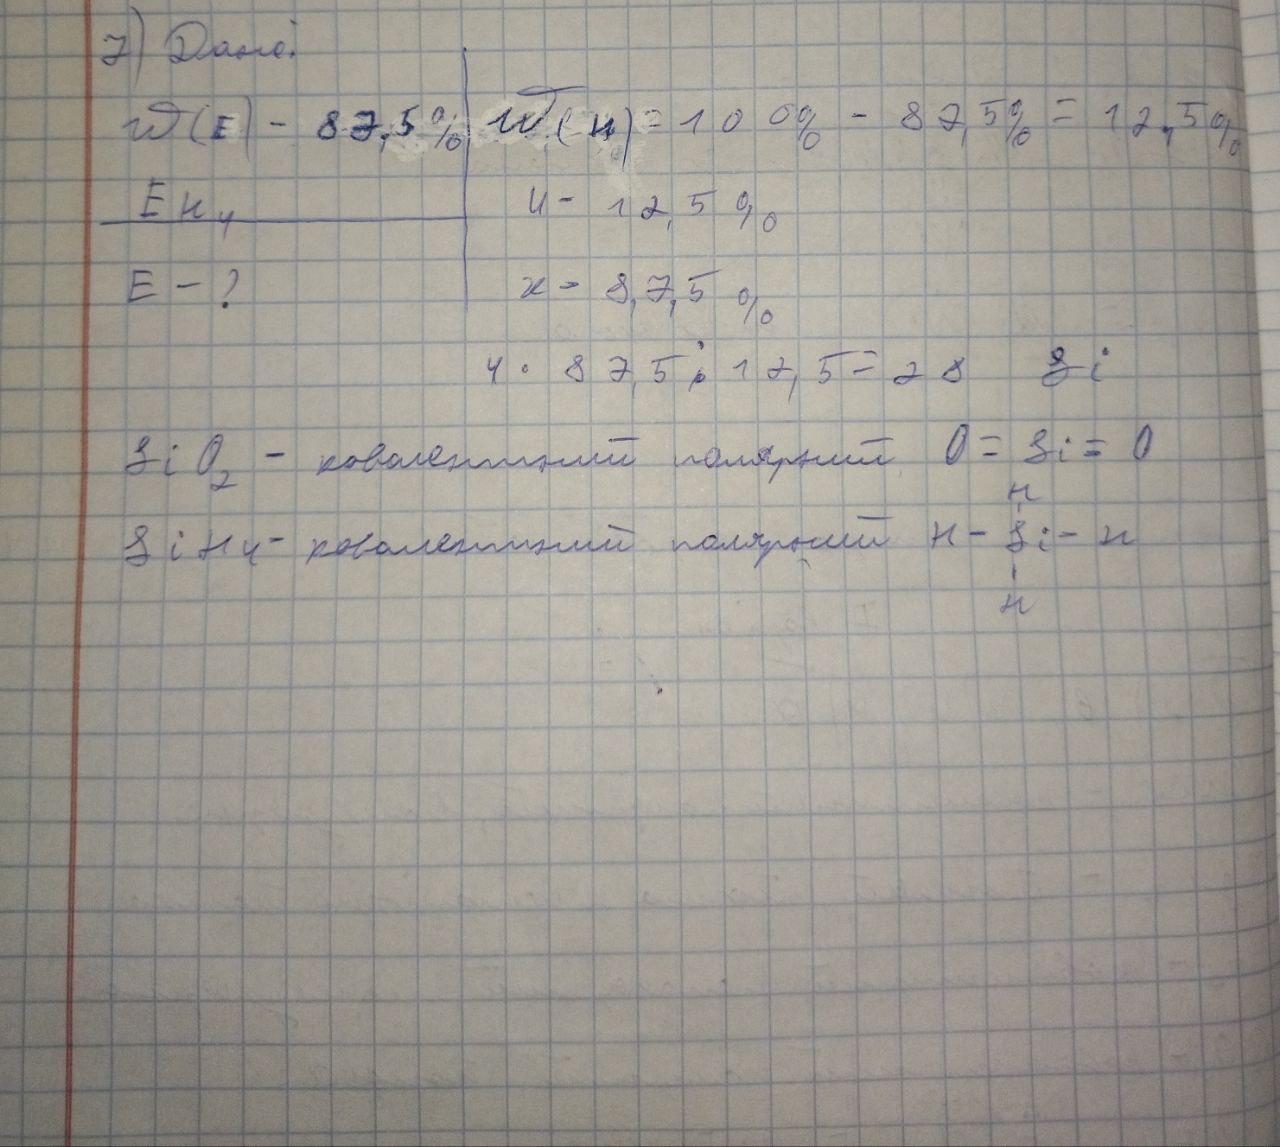 7) Дано:
W(E) - 87,5% W(H) = 100% - 87,5% = 12,5%
EH₄ 4 - 12,5%
E - ? x - 87,5%
4 · 87,5 : 12,5 = 28 Si
SiO₂ - ковалентний полярний O = Si = O
H
SiH₄ - ковалентний полярний H - Si - H
H